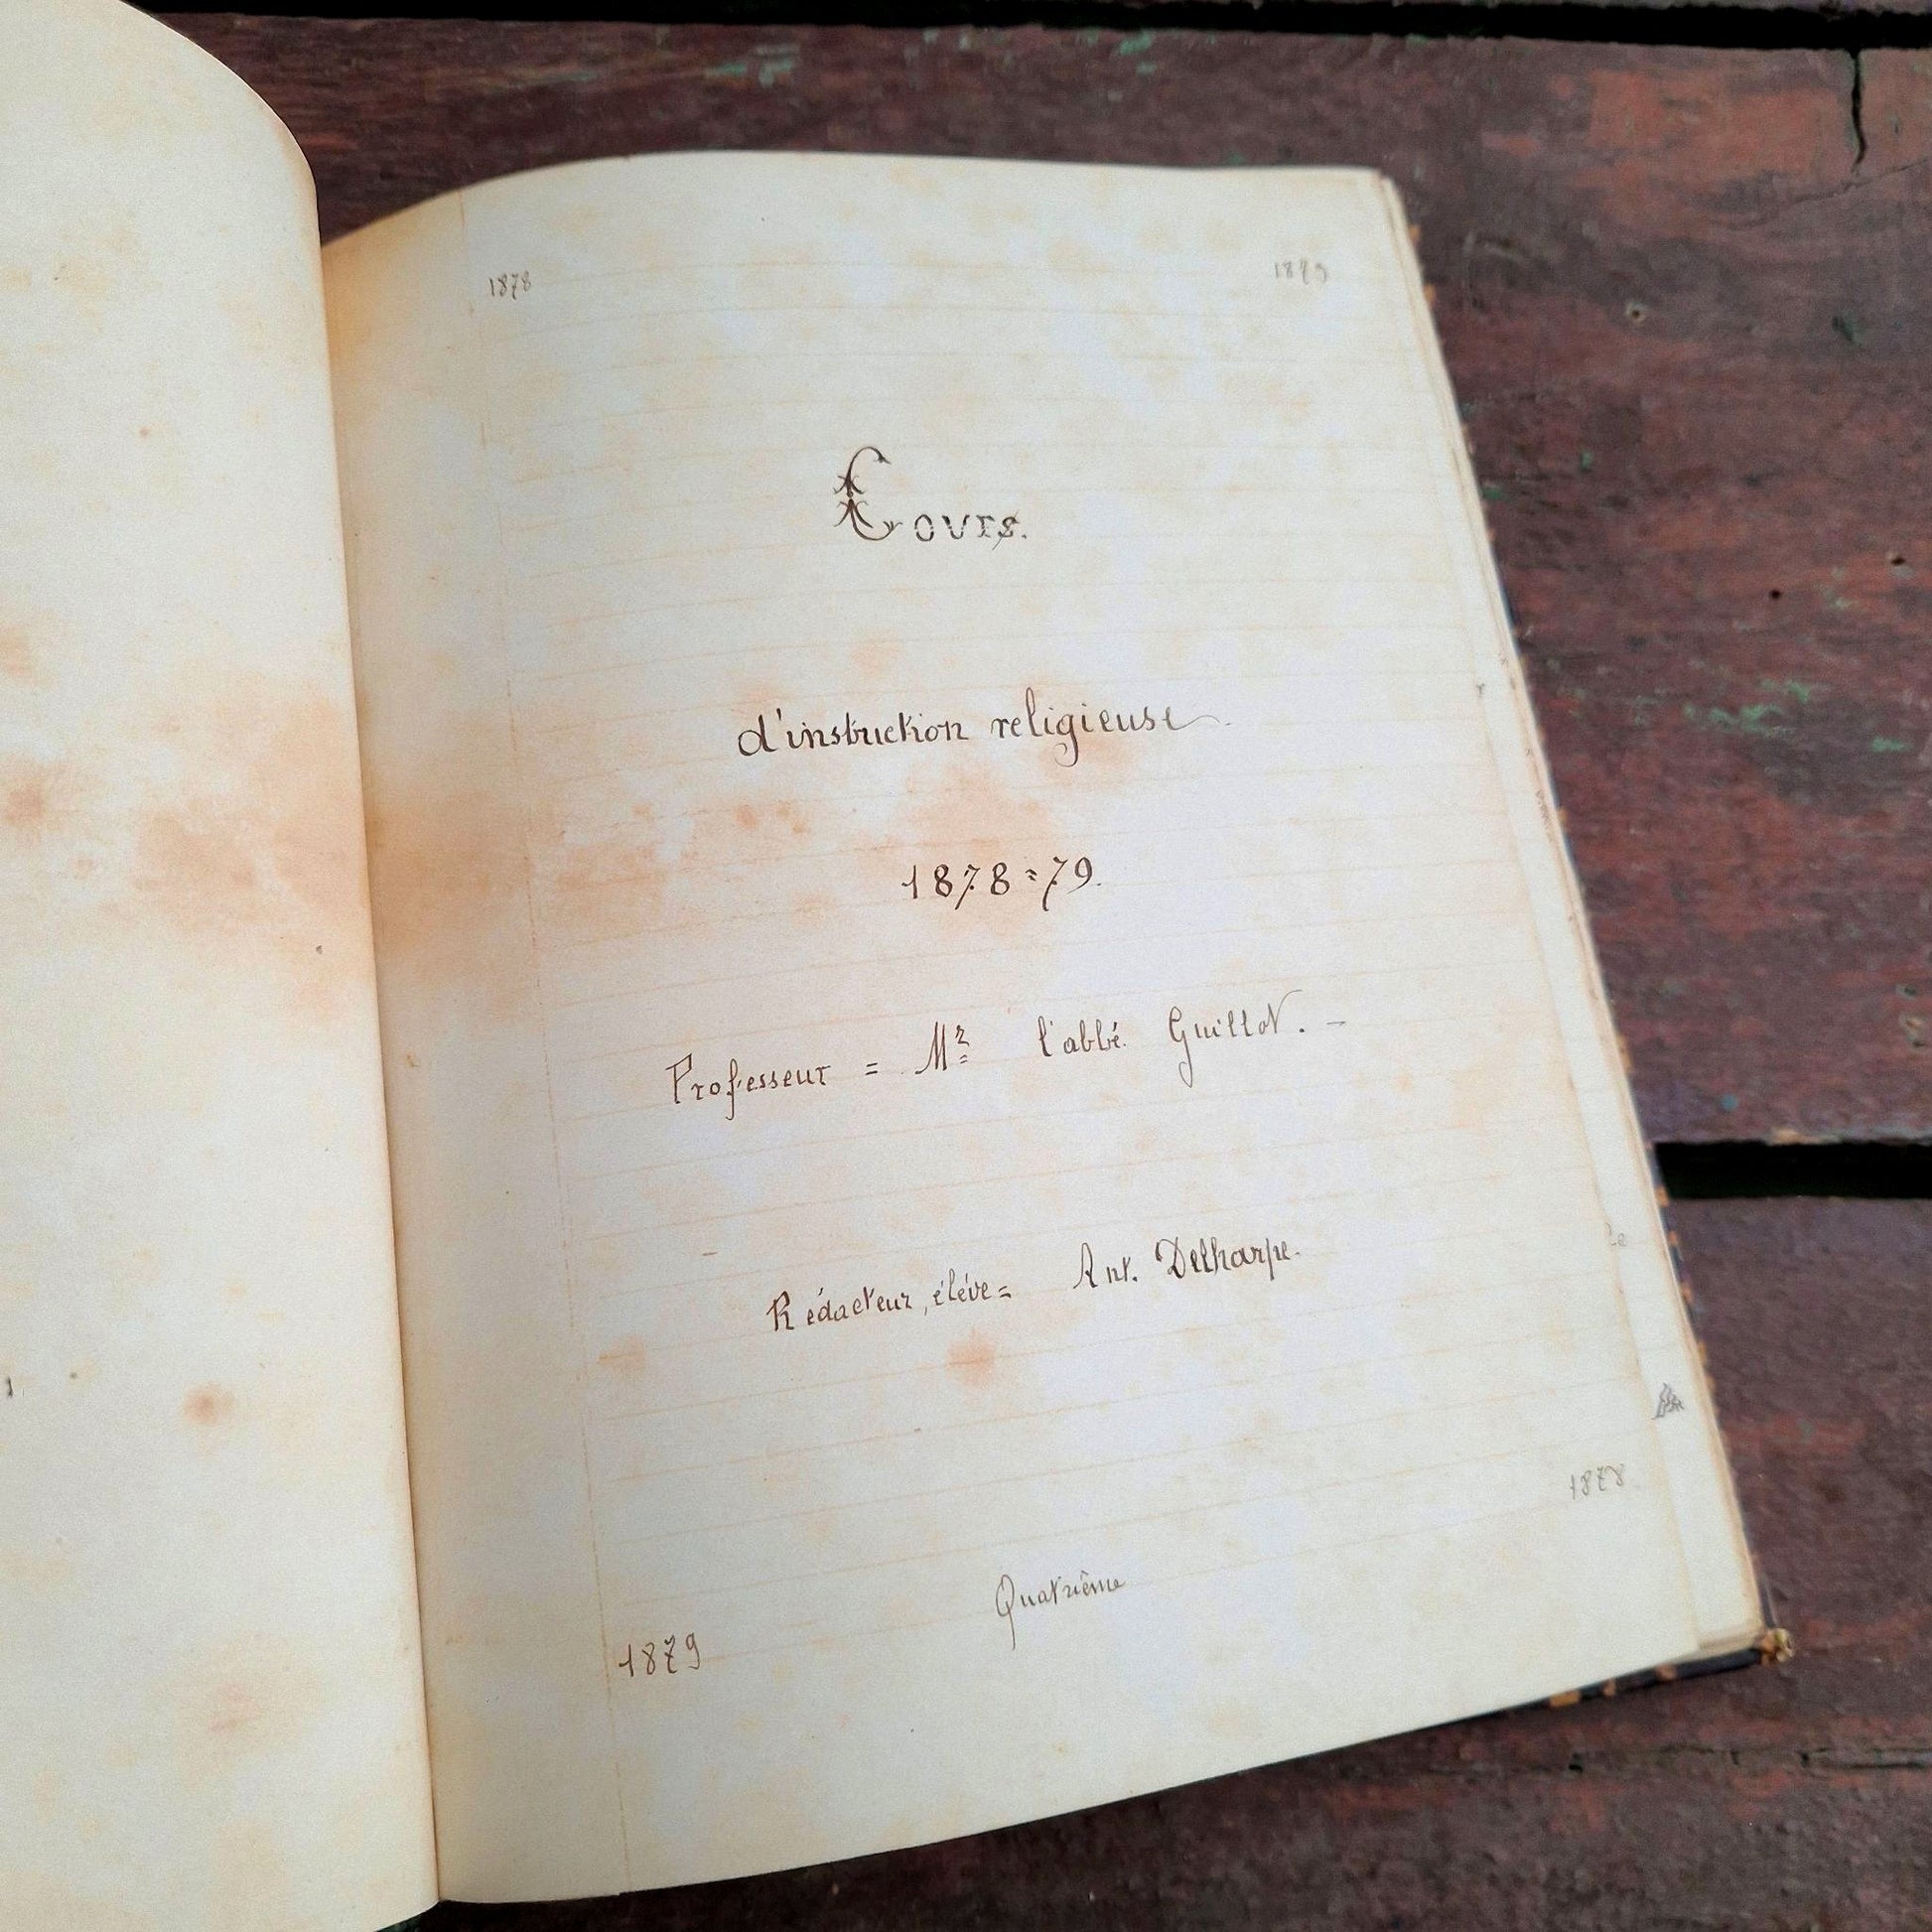 1878 1879
Cours.
d'instruction religieuse.
1878=79.
Professeur = Mr l'abbé Guillot. -
Rédacteur, élève = Ant. Delharpe.
1878
Quatrième
1879